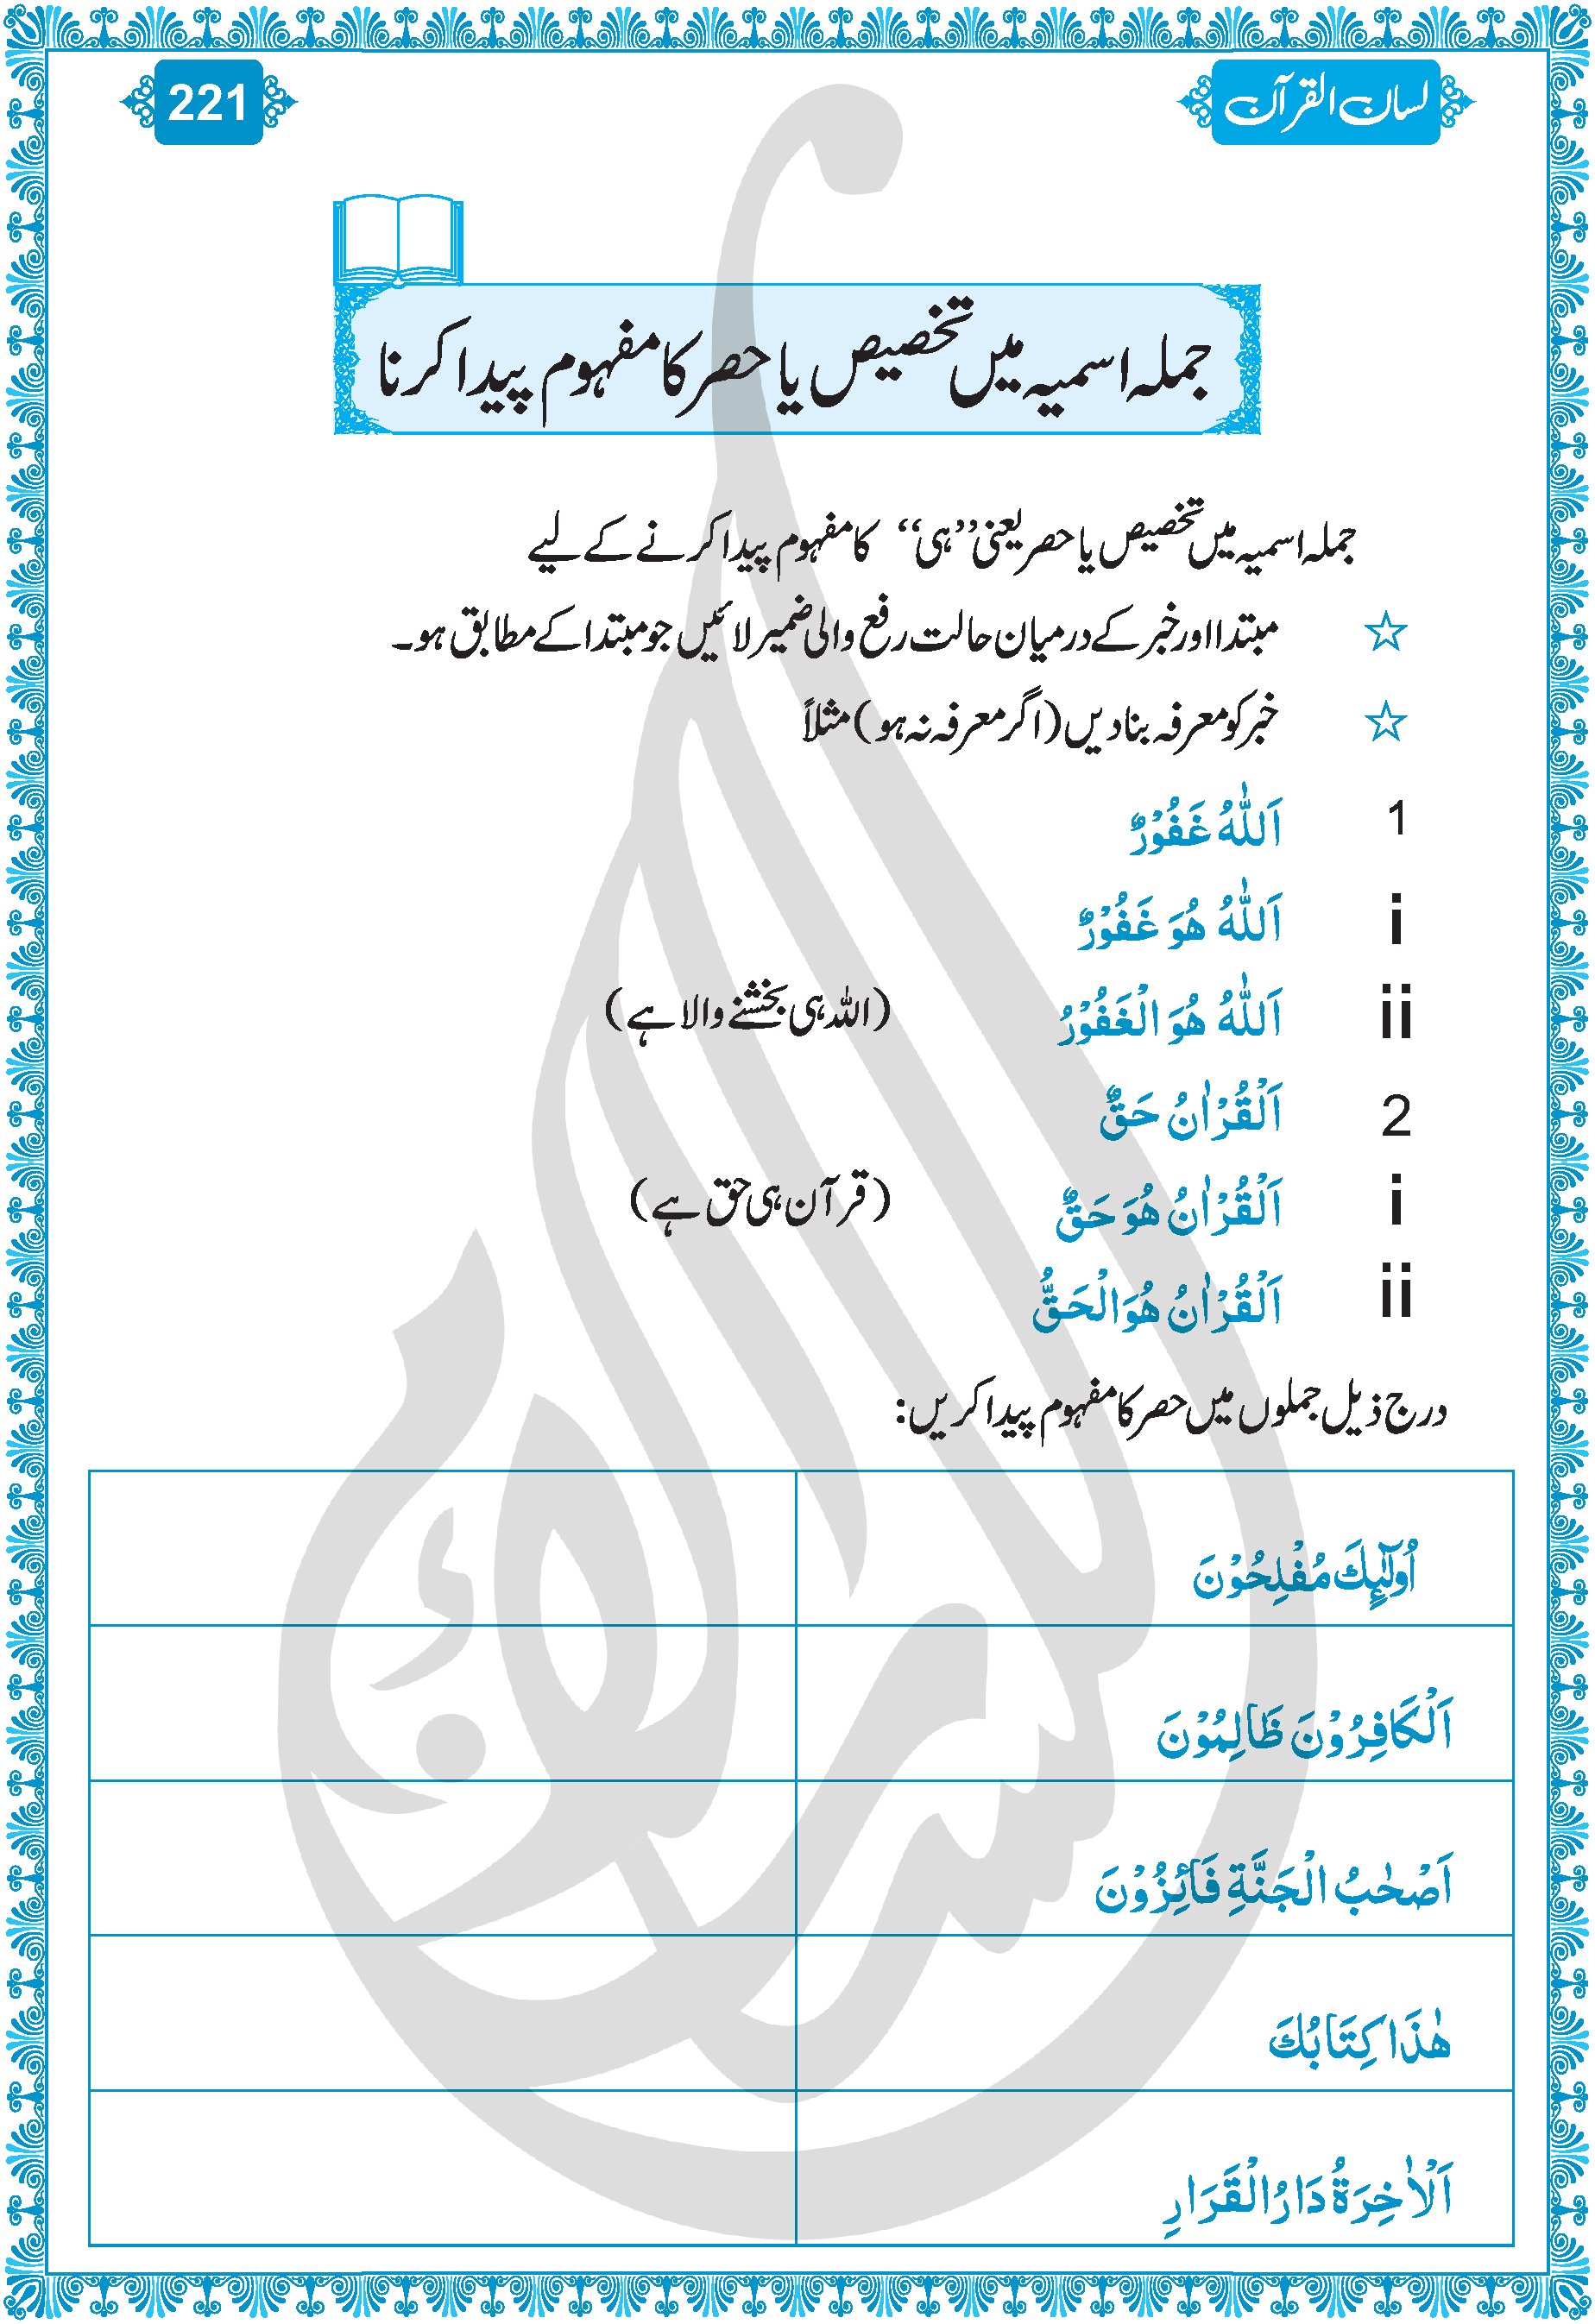 لسان القرآن
221
جملہ اسمیہ میں تخصیص یا حصر کا مفہوم پیدا کرنا
جملہ اسمیہ میں تخصیص یا حصر یعنی ’’ہی‘‘ کا مفہوم پیدا کرنے کے لیے
☆ مبتدا اور خبر کے درمیان حالت رفع والی ضمیر لائیں جو مبتدا کے مطابق ہو۔
☆ خبر کو معرفہ بنا دیں (اگر معرفہ نہ ہو) مثلاً
1 اَللّٰهُ غَفُوْرٌ
i اَللّٰهُ هُوَ غَفُوْرٌ
ii اَللّٰهُ هُوَ الْغَفُوْرُ (اللہ ہی بخشنے والا ہے)
2 اَلْقُرْاٰنُ حَقٌّ
i اَلْقُرْاٰنُ هُوَ حَقٌّ (قرآن ہی حق ہے)
ii اَلْقُرْاٰنُ هُوَ الْحَقُّ
درج ذیل جملوں میں حصر کا مفہوم پیدا کریں:
اُولٰٓئِكَ مُفْلِحُوْنَ
اَلْكَافِرُوْنَ ظَالِمُوْنَ
اَصْحٰبُ الْجَنَّةِ فَائِزُوْنَ
هٰذَا كِتَابُكَ
اَلْاٰخِرَةُ دَارُ الْقَرَارِ